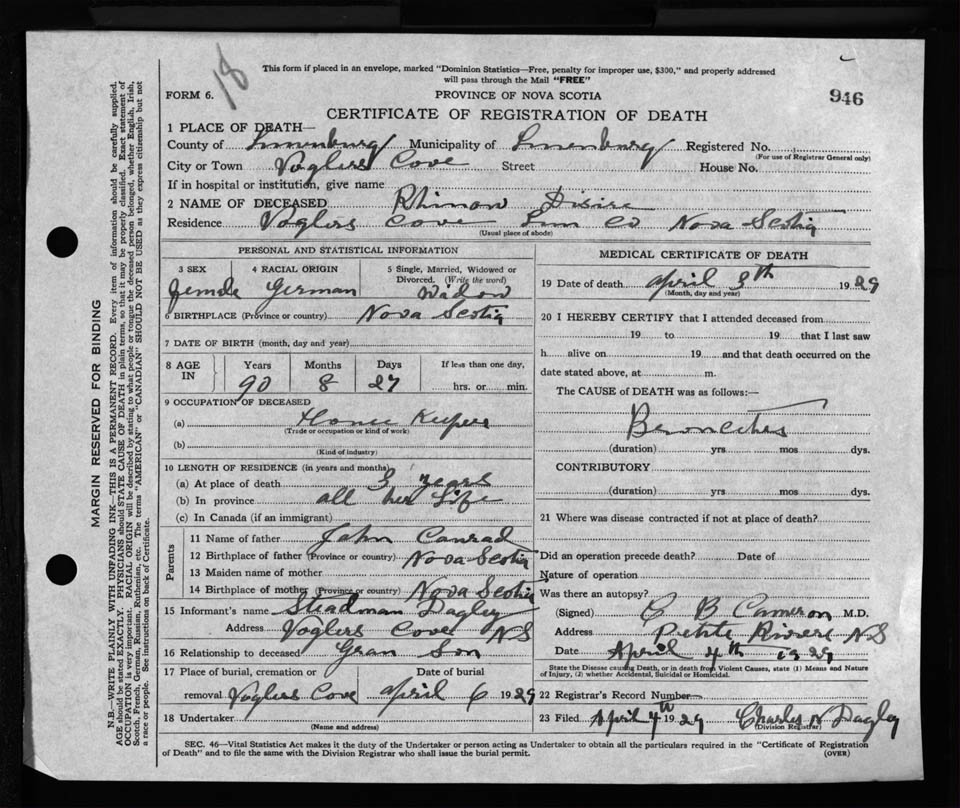 18
This form if placed in an envelope, marked "Dominion Statistics—Free, penalty for improper use, $300," and properly addressed
will pass through the Mail "FREE"
FORM 6.
PROVINCE OF NOVA SCOTIA
946
CERTIFICATE OF REGISTRATION OF DEATH
1 PLACE OF DEATH—
County of Lunenburg Municipality of Lunenburg Registered No.
(For use of Registrar General only)
City or Town Voglers Cove Street House No.
If in hospital or institution, give name
2 NAME OF DECEASED
Residence Voglers Cove Lun Co Nova Scotia
(Usual place of abode)
PERSONAL AND STATISTICAL INFORMATION
3 SEX 4 RACIAL ORIGIN 5 Single, Married, Widowed or
Divorced. (Write the word)
female German Widow
6 BIRTHPLACE (Province or country) Nova Scotia
7 DATE OF BIRTH (month, day and year)
8 AGE IN Years Months Days If less than one day,
90 8 27 hrs. or min.
9 OCCUPATION OF DECEASED
(a) House Keeper
(Trade or occupation or kind of work)
(b)
(Kind of industry)
10 LENGTH OF RESIDENCE (in years and months)
(a) At place of death 3 years
(b) In province all her Life
(c) In Canada (if an immigrant)
Parents
11 Name of father John Conrad
12 Birthplace of father (Province or country) Nova Scotia
13 Maiden name of mother
14 Birthplace of mother (Province or country) Nova Scotia
15 Informant's name Steadman Dagley
Address Voglers Cove NS
16 Relationship to deceased Gran Son
17 Place of burial, cremation or Date of burial
removal Voglers Cove April 6 1929
18 Undertaker
(Name and address)
MEDICAL CERTIFICATE OF DEATH
19 Date of death April 3th 1929
(Month, day and year)
20 I HEREBY CERTIFY that I attended deceased from
19 to 19 that I last saw
h alive on 19 and that death occurred on the
date stated above, at m.
The CAUSE of DEATH was as follows:—
(duration) yrs mos dys.
CONTRIBUTORY
(duration) yrs mos dys.
21 Where was disease contracted if not at place of death?
Did an operation precede death? Date of
Nature of operation
Was there an autopsy?
(Signed) C B Cameron M.D.
Address Petite Riviere NS
Date April 4th 1929
State the Disease causing Death, or in death from Violent Causes, state (1) Means and Nature
of Injury, (2) whether Accidental, Suicidal or Homicidal.
22 Registrar's Record Number
23 Filed April 4th 1929 Charles N Dagley
(Division Registrar)
SEC. 46—Vital Statistics Act makes it the duty of the Undertaker or person acting as Undertaker to obtain all the particulars required in the "Certificate of Registration
of Death" and to file the same with the Division Registrar who shall issue the burial permit.
(OVER)
MARGIN RESERVED FOR BINDING
N.B.—WRITE PLAINLY WITH UNFADING INK—THIS IS A PERMANENT RECORD. Every item of information should be carefully supplied.
AGE should be stated EXACTLY. PHYSICIANS should STATE CAUSE OF DEATH in plain terms, so that it may be properly classified. Exact statement of
OCCUPATION is very important. RACIAL ORIGIN will be described by stating to what people or tongue the deceased person belonged, whether English, Irish,
Scotch, French, German, Russian, Ruthenian, etc. The terms "AMERICAN" or "CANADIAN" SHOULD NOT BE USED as they express citizenship but not
a race or people. See instructions on back of Certificate.